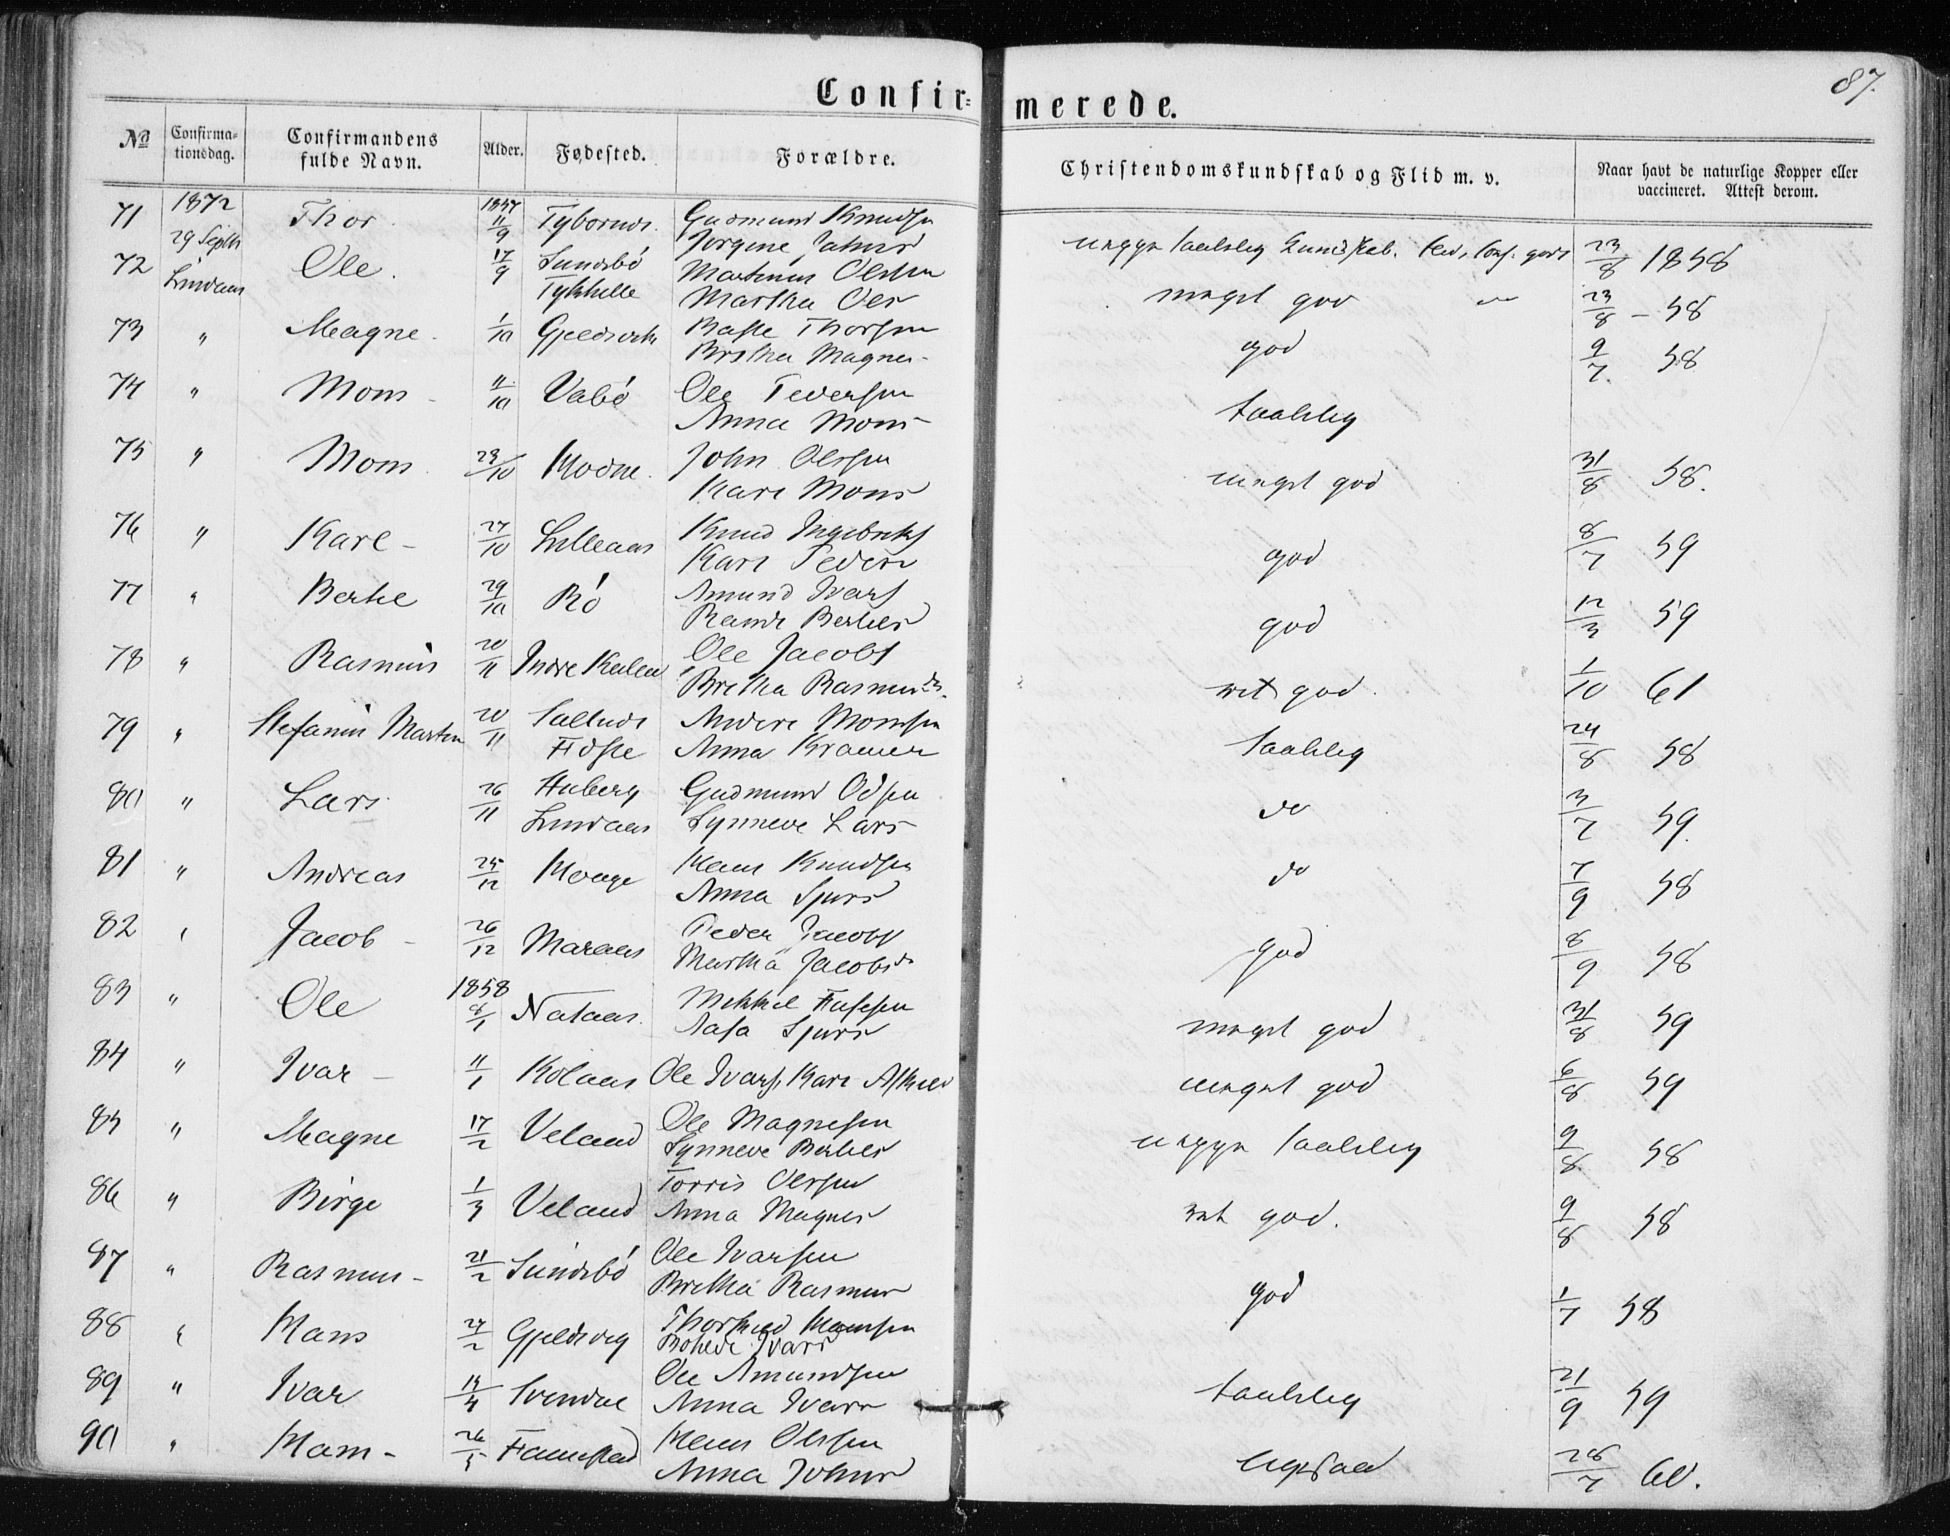 87.
Confir=merede.
No Confirmationsdag. Confirmandens fulde Navn. Alder. Fødested. Forældre. Christendomskundskab og Flid m. v. Naar havt de naturlige Kopper eller vaccineret. Attest derom.
71 1872 29 Septbr Lindaas Thor 1857 11/9 Gudmund Knudsen 23/8 1858
72 Ole. 17/9 Sundsbö Martinus Olsen Martha Ols meget god do 23/8 - 58
73 " Magne 1/10 Gjeldsvik Thorsen Britha Magnes god 9/7. 58
74 " Mons 11/10 Vabö Ole Pedersen Anna Mons taalelig
75 " Mons 23/10 John Olssen Kari Mons meget god 31/8 58.
76 " Kari 27/10 Lilleaas Knud Ingebrikts Kari Peders god 8/7 59
77 " Berthe 29/10 Rö Amund Ivars Randi Berthes god 12/3 59
78 " Rasmus 20/11 Indre Ole Jacobs Britha Rasmusds. ret god 1/10 61
79 " Stefanus Martin 20/11 Andere Monssen Anna Kramer taalelig 24/8 58
80 " Lars 26/11 Lindaas Gudmund Odsen Synneve Lars do 3/7 59
81 " Andreas 25/12 Knudsen Anna Sjurs do 7/9 58
82 " Jacob 26/12 Maraas Peder Jacobs Martha Jacobsd god 8/9 58
83 " Ole 1858 8/1 Nataas. Mikkel Sjurs meget god 31/8 59
84 " Ivar 11/1 Kolaas Ole Ivars, Kari meget god 6/8 59
85 " Magne 17/2 Veland Ole Magnesen Synneve Berthes taalelig 9/8 58
86 " Birge 1/3 Veland Torris Olssen Anna Magnes ret god. 9/8 58
87 " Rasmus 21/2 Sundsbö Ole Ivarsen Britha Rasmus god 1/7 58
88 " Hans 27/2 Gjeldsvig Hansen Ivars
89 " Ivar 14/4 Svendal Ole Amundsen Anna Ivars taalelig 21/9 59
90 " Hans 26/5 Hans Olssen Anna Johns ligesaa 28/7 60.